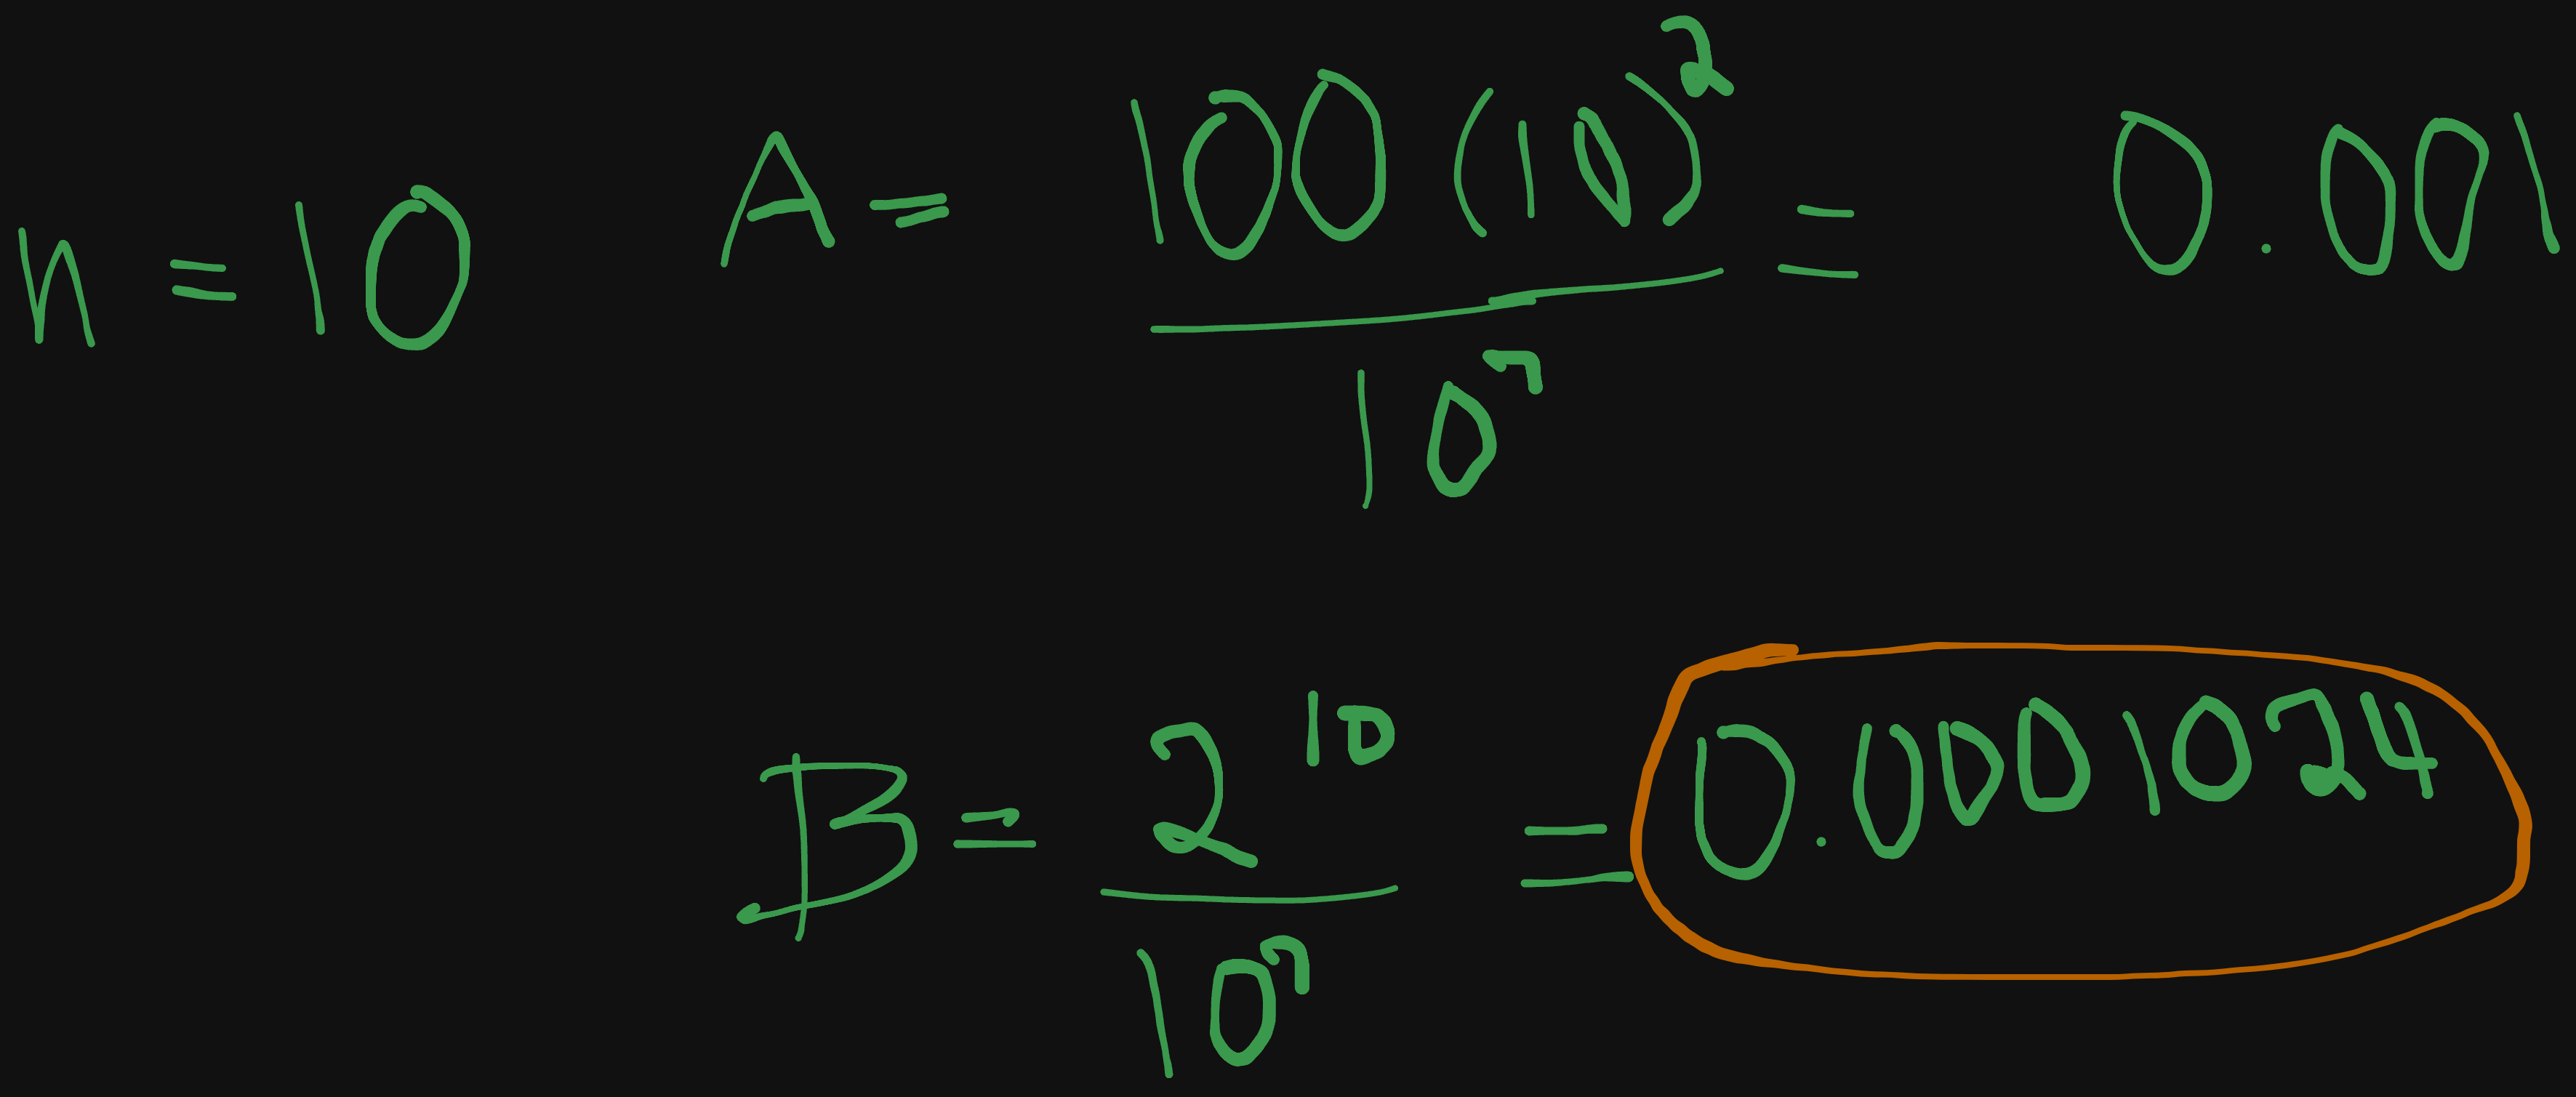 n = 10
A = 100(10)² / 10⁷ = 0.001
B = 2¹⁰ / 10⁷ = 0.0001024